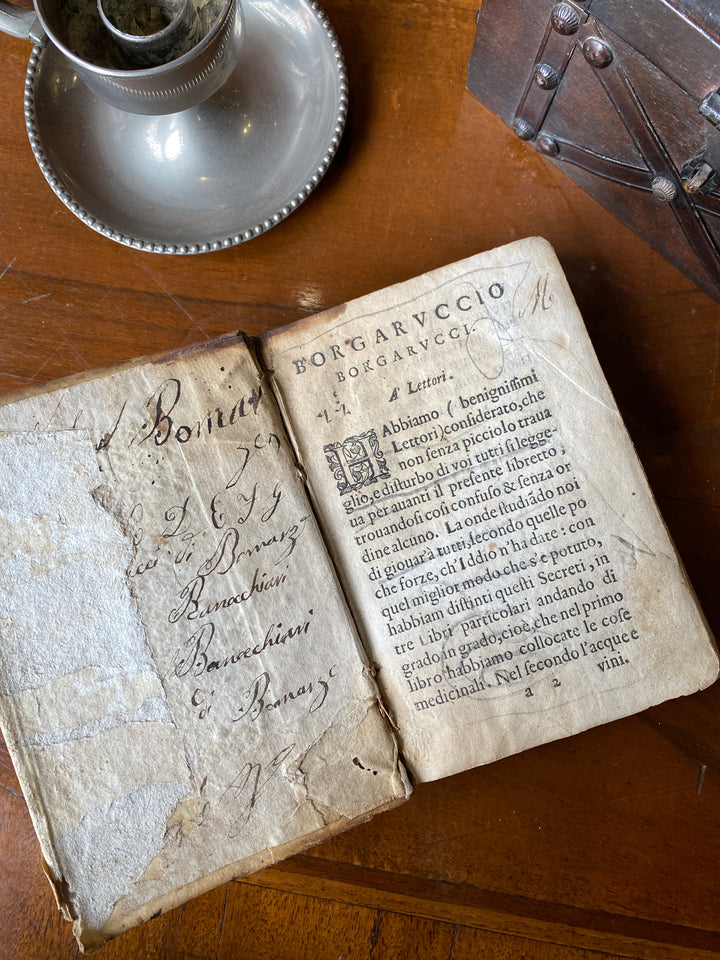 Bomarz
D E F G
di Bomarz
Banachiari
Banachiari
di Bomarz
BORGARVCCIO
BORGARVCCI.
A' Lettori.
M
HAbbiamo (benignissimi
Lettori) considerato, che
non senza picciolo traua
glio, e disturbo di voi tutti si legge-
ua per auanti il presente libretto,
trouandosi così confuso & senza or
dine alcuno. La onde studiãdo noi
di giouar'à tutti, secondo quelle po
che forze, ch'Iddio n'ha date: con
quel miglior modo che s'e potuto,
habbiam distinti questi Secreti, in
tre Libri particolari andando di
grado in grado, cioè, che nel primo
libro habbiamo collocate le cose
medicinali. Nel secondo l'acque e
a 2
vini.